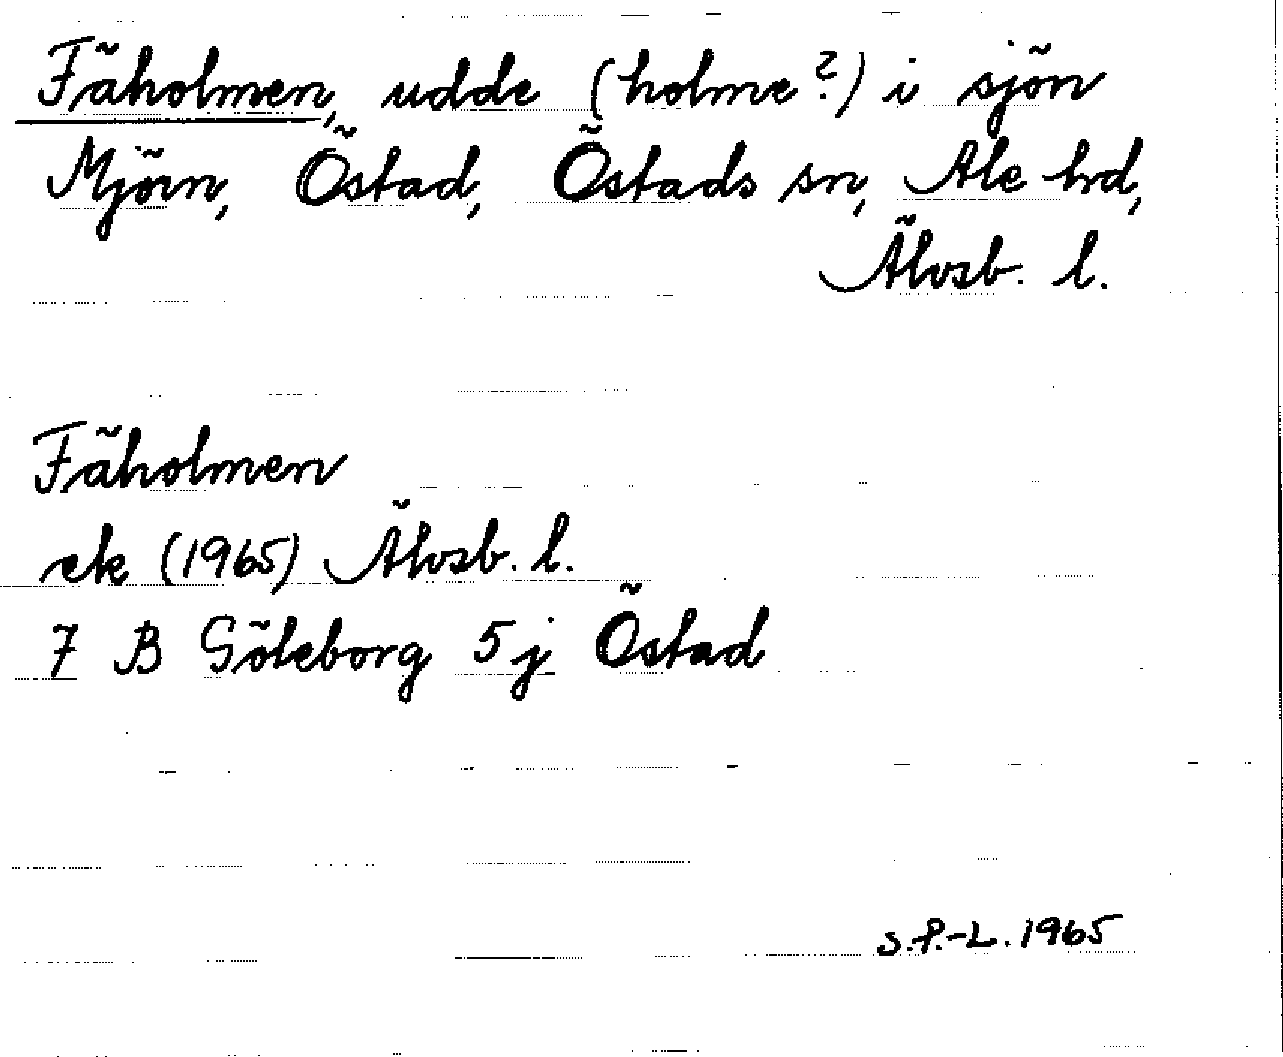 Fäholmen, udde (holme?) i sjön
Mjörn, Östad, Östads sn, Ale hrd,
Älvsb. l.
Fäholmen
ek (1965) Älvsb. l.
7 B Göteborg 5 j Östad
S.P.-L. 1965